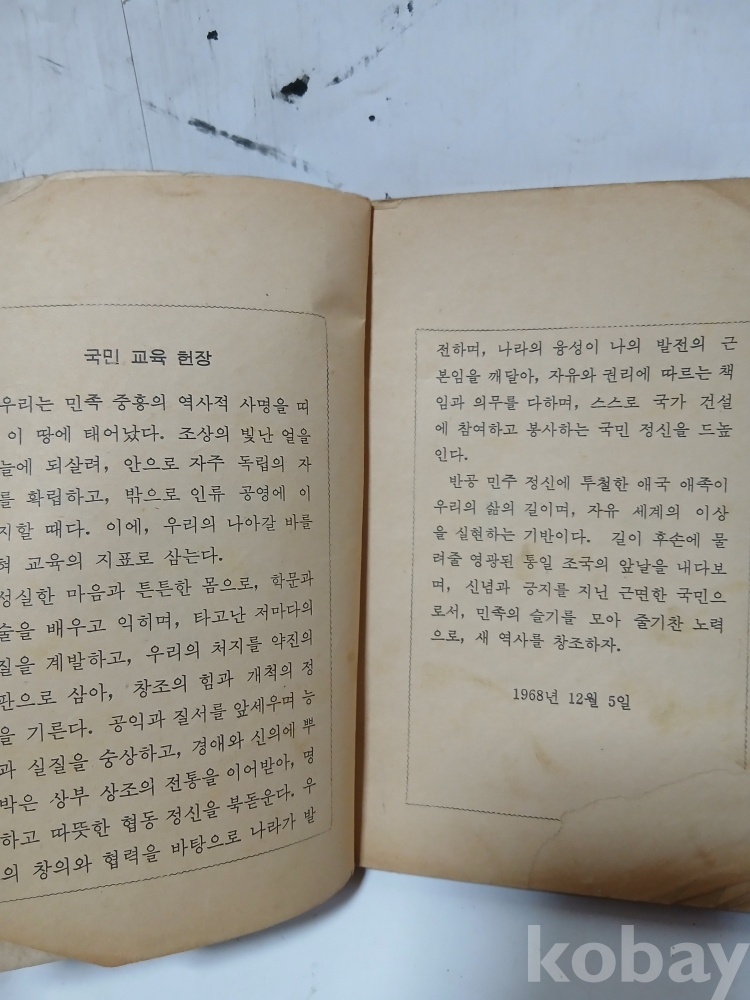 국민 교육 헌장
우리는 민족 중흥의 역사적 사명을 띠
이 땅에 태어났다. 조상의 빛난 얼을
늘에 되살려, 안으로 자주 독립의 자
를 확립하고, 밖으로 인류 공영에 이
지할 때다. 이에, 우리의 나아갈 바를
혀 교육의 지표로 삼는다.
성실한 마음과 튼튼한 몸으로, 학문과
술을 배우고 익히며, 타고난 저마다의
질을 계발하고, 우리의 처지를 약진의
판으로 삼아, 창조의 힘과 개척의 정
을 기른다. 공익과 질서를 앞세우며 능
과 실질을 숭상하고, 경애와 신의에 뿌
박은 상부 상조의 전통을 이어받아, 명
하고 따뜻한 협동 정신을 북돋운다. 우
의 창의와 협력을 바탕으로 나라가 발
전하며, 나라의 융성이 나의 발전의 근
본임을 깨달아, 자유와 권리에 따르는 책
임과 의무를 다하며, 스스로 국가 건설
에 참여하고 봉사하는 국민 정신을 드높
인다.
반공 민주 정신에 투철한 애국 애족이
우리의 삶의 길이며, 자유 세계의 이상
을 실현하는 기반이다. 길이 후손에 물
려줄 영광된 통일 조국의 앞날을 내다보
며, 신념과 긍지를 지닌 근면한 국민으
로서, 민족의 슬기를 모아 줄기찬 노력
으로, 새 역사를 창조하자.
1968년 12월 5일
kobay